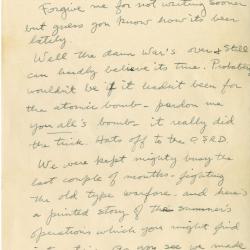 Forgive me for not writing sooner
but guess you know how its been
lately.
Well the damn War's over & Still
can hardly believe its true. Probably
wouldn't be if it hadn't been for
the atomic bomb - pardon me
you all's bomb it really did
the trick. Hats off to the OSRD.
We were kept mighty busy the
last couple of months - fighting
the old type warfare, and here's
a printed story of the summer's
operations which you might find